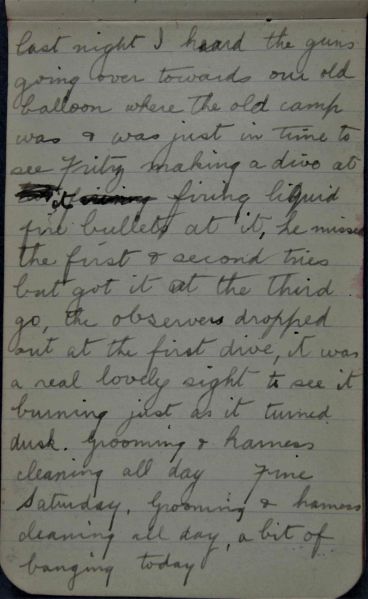 last night I heard the guns
going over towards our old
balloon where the old camp
was & was just in time to
see Fritz making a dive at
it firing liquid
fire bullets at it, he missed
the first & second tries
but got it at the third
go, the observers dropped
out at the first dive, it was
a real lovely sight to see it
burning just as it turned
dusk. Grooming & harness
cleaning all day Fine
Saturday, Grooming & harness
cleaning all day, a bit of
banging today